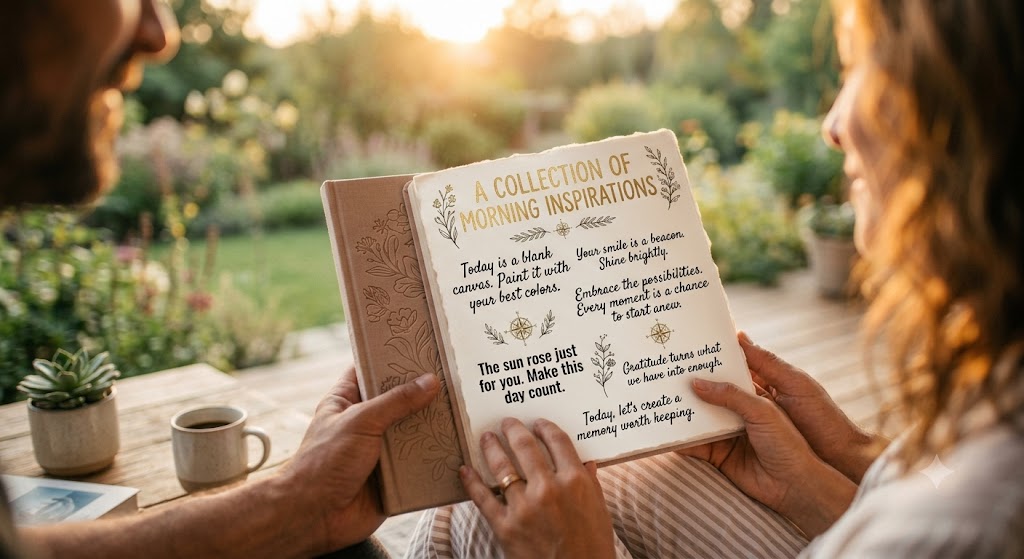 A COLLECTION OF
MORNING INSPIRATIONS
Today is a blank
canvas. Paint it with
your best colors.
Your smile is a beacon.
Shine brightly.
Embrace the possibilities.
Every moment is a chance
to start anew.
The sun rose just
for you. Make this
day count.
Gratitude turns what
we have into enough.
Today, let's create a
memory worth keeping.